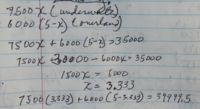 7500x (underwater)
6000(5-x) (overland)
7500x + 6000(5-x) = 35000
7500x 30000 - 6000x = 35000
1500x = 5000
x = 3.333
7500(3.333) + 6000(5-3.333) = 34999.5